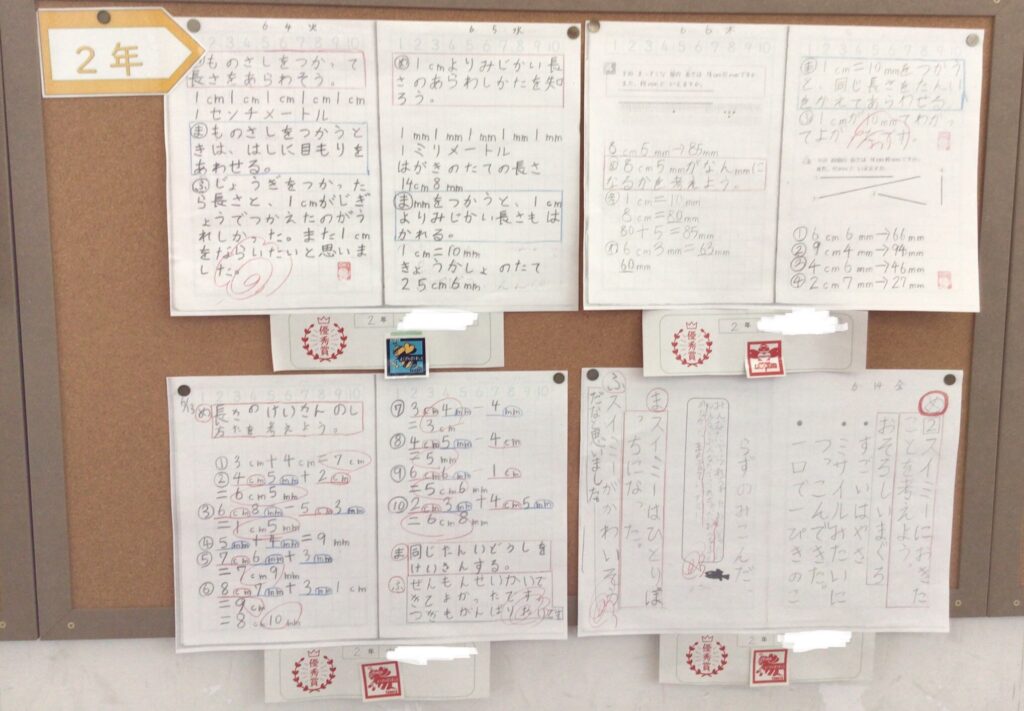 2年
6 4 火
ものさしをつかって
長さをあらわそう。
1cm1cm1cm1cm1cm
1センチメートル
まものさしをつかうと
きは、はしに目もりを
あわせる。
ふじょうぎをつかった
ら長さと、1cmがじぎ
ょうでつかえたのがう
れしかった。また1cm
をならいたいと思いま
した。
6 5 水
め1cmよりみじかい長
さのあらわしかたを知
ろう。
1mm1mm1mm1mm1mm
1ミリメートル
はがきのたての長さ
14cm8mm
まmmをつかうと、1cm
よりみじかい長さもは
かれる。
1cm=10mm
きょうかしょのたて
25cm6mm
6 6 木
8cm5mm→85mm
8cm5mmがなんmmに
なるかを考えよう。
1cm=10mm
8cm=80mm
80+5=85mm
6cm3mm=63mm
60mm
ま1cm=10mmをつかう
と、同じ長さをたんい
をかえてあらわせる。
ふ1cmが10mmてわかっ
てよかったです。
①6cm6mm→66mm
②9cm4mm→94mm
③4cm6mm→46mm
④2cm7mm→27mm
優秀賞
2年
優秀賞
2年
6/13 め長さのけいさんのし
方を考えよう。
①3cm+4cm=7cm
②4cm5mm+2cm
=6cm5mm
③6cm8mm-5cm3mm
=1cm5mm
④5mm+4mm=9mm
⑤7cm6mm+3mm
=7cm9mm
⑥8cm7mm+3mm 1cm
=9cm
=8cm10mm
⑦3cm4mm-4mm
=3cm
⑧4cm5mm-4cm
=5mm
⑨6cm6mm-1cm
=5cm6mm
⑩2cm3mm+4cm5mm
=6cm8mm
ま同じたんいどうしを
けいさんする。
ふぜんもんせいかいで
きてよかったです
つぎもがんばりたいです
6 14 金
め
2スイミーにおきた
ことを考えよう
おそろしいまぐろ
・すごいはやさ
・ミサイルみたいに
つっこんできた。
・一口で一ぴきのこ
らずのみこんだ
まスイミーはひとりぼ
っちになった。
ふスイミーがかわいそう
だなと思いました。
優秀賞
2年
優秀賞
2年